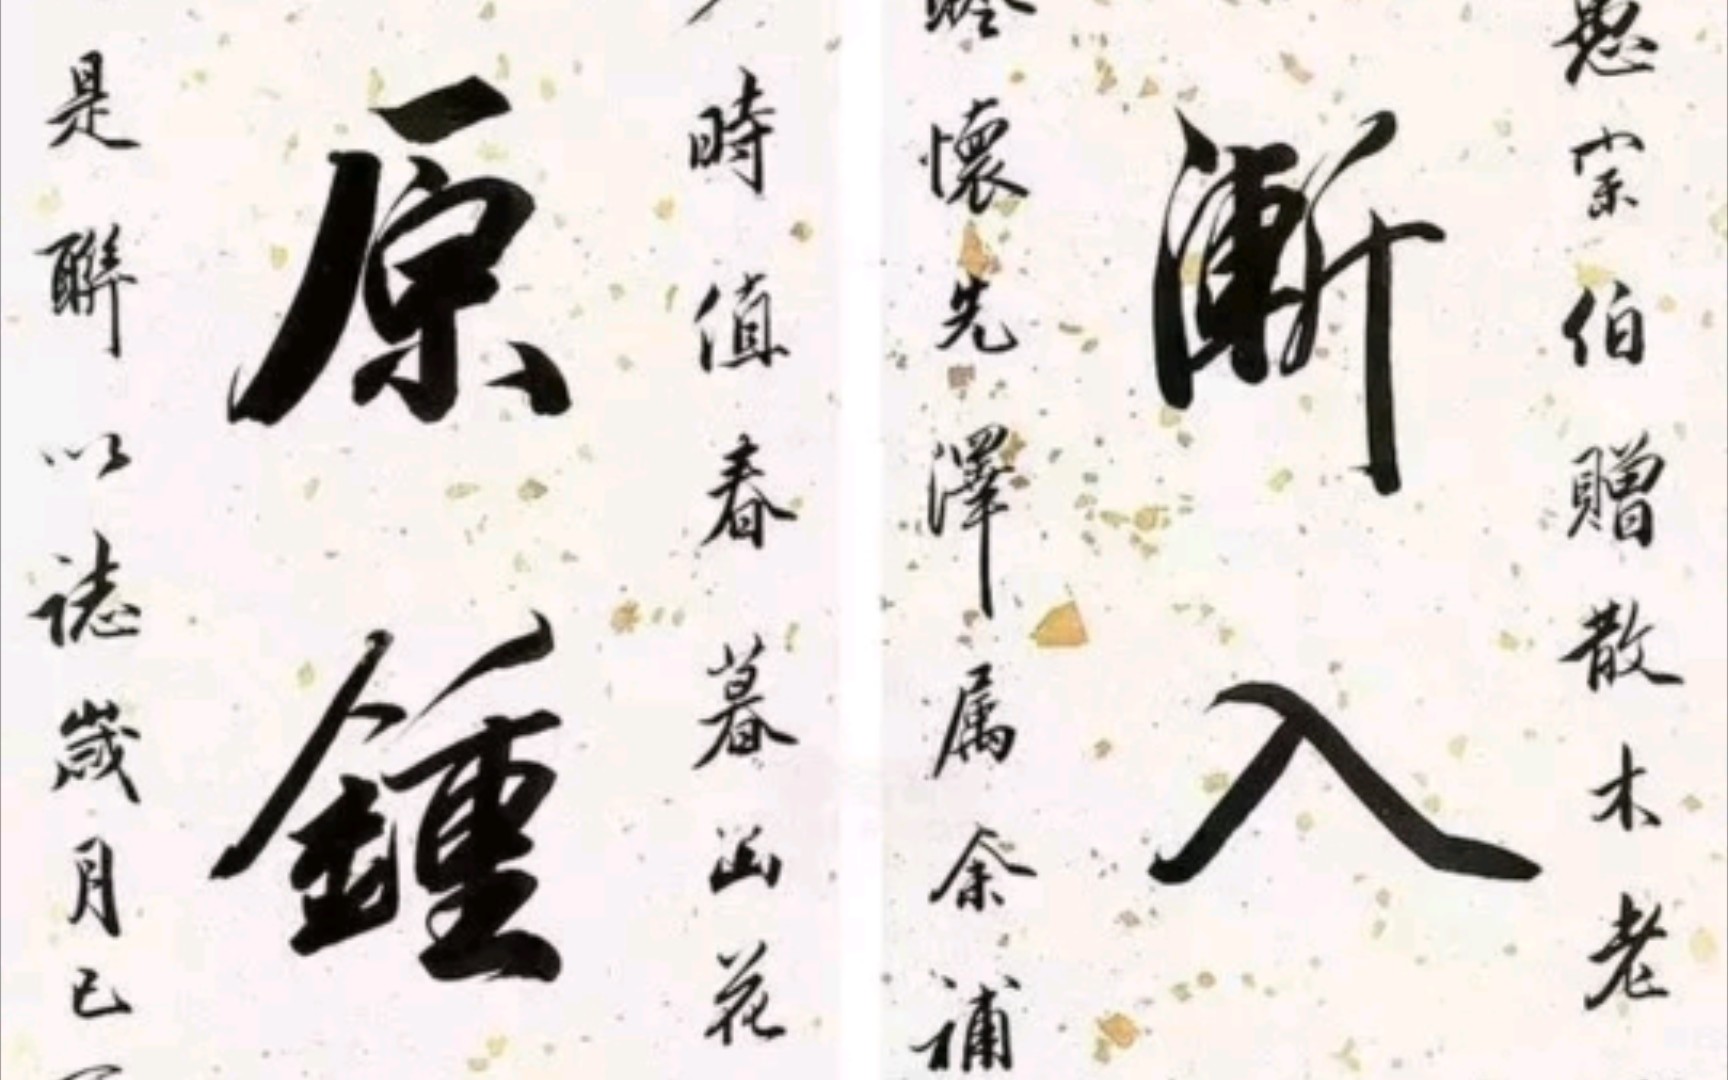 愚宗伯贈散木老
漸入
懷先澤属余補
時值春暮山花
原鍾
是聯以誌歲月己